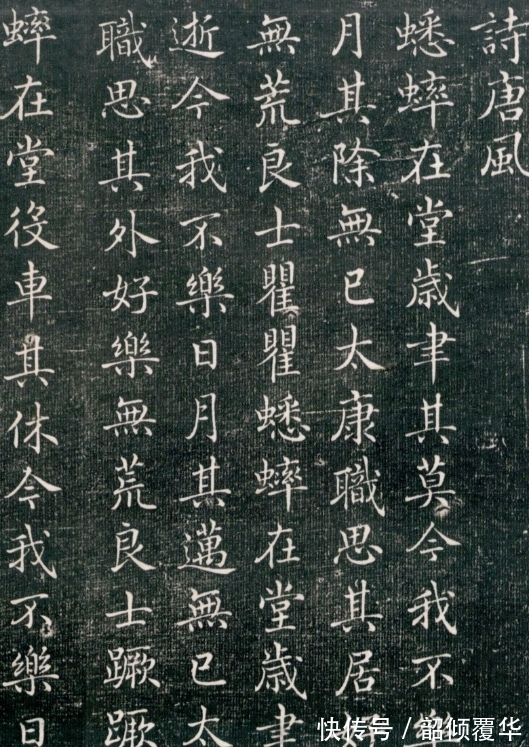 詩唐風
蟋蟀在堂歲聿其莫今我不樂
月其除無已太康職思其居好
無荒良士瞿瞿蟋蟀在堂歲聿
逝今我不樂日月其邁無已太
職思其外好樂無荒良士蹶蹶
蟀在堂役車其休今我不樂日
快传号／韶倾覆华